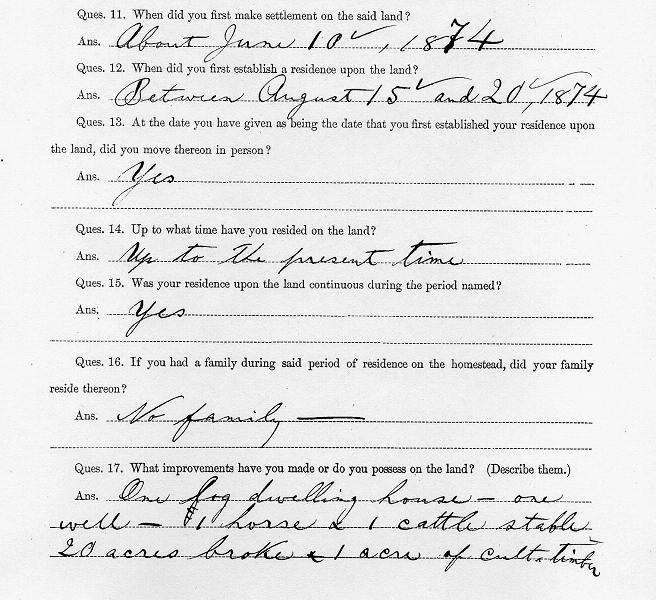 Ques. 11. When did you first make settlement on the said land?
Ans. About June 10, 1874
Ques. 12. When did you first establish a residence upon the land?
Ans. Between August 15 and 20, 1874
Ques. 13. At the date you have given as being the date that you first established your residence upon
the land, did you move thereon in person?
Ans. Yes
Ques. 14. Up to what time have you resided on the land?
Ans. Up to the present time
Ques. 15. Was your residence upon the land continuous during the period named?
Ans. Yes
Ques. 16. If you had a family during said period of residence on the homestead, did your family
reside thereon?
Ans. No family —
Ques. 17. What improvements have you made or do you possess on the land? (Describe them.)
Ans. One log dwelling house – one
well – 1 horse & 1 cattle stable
20 acres broke & 1 acre of cult. timber